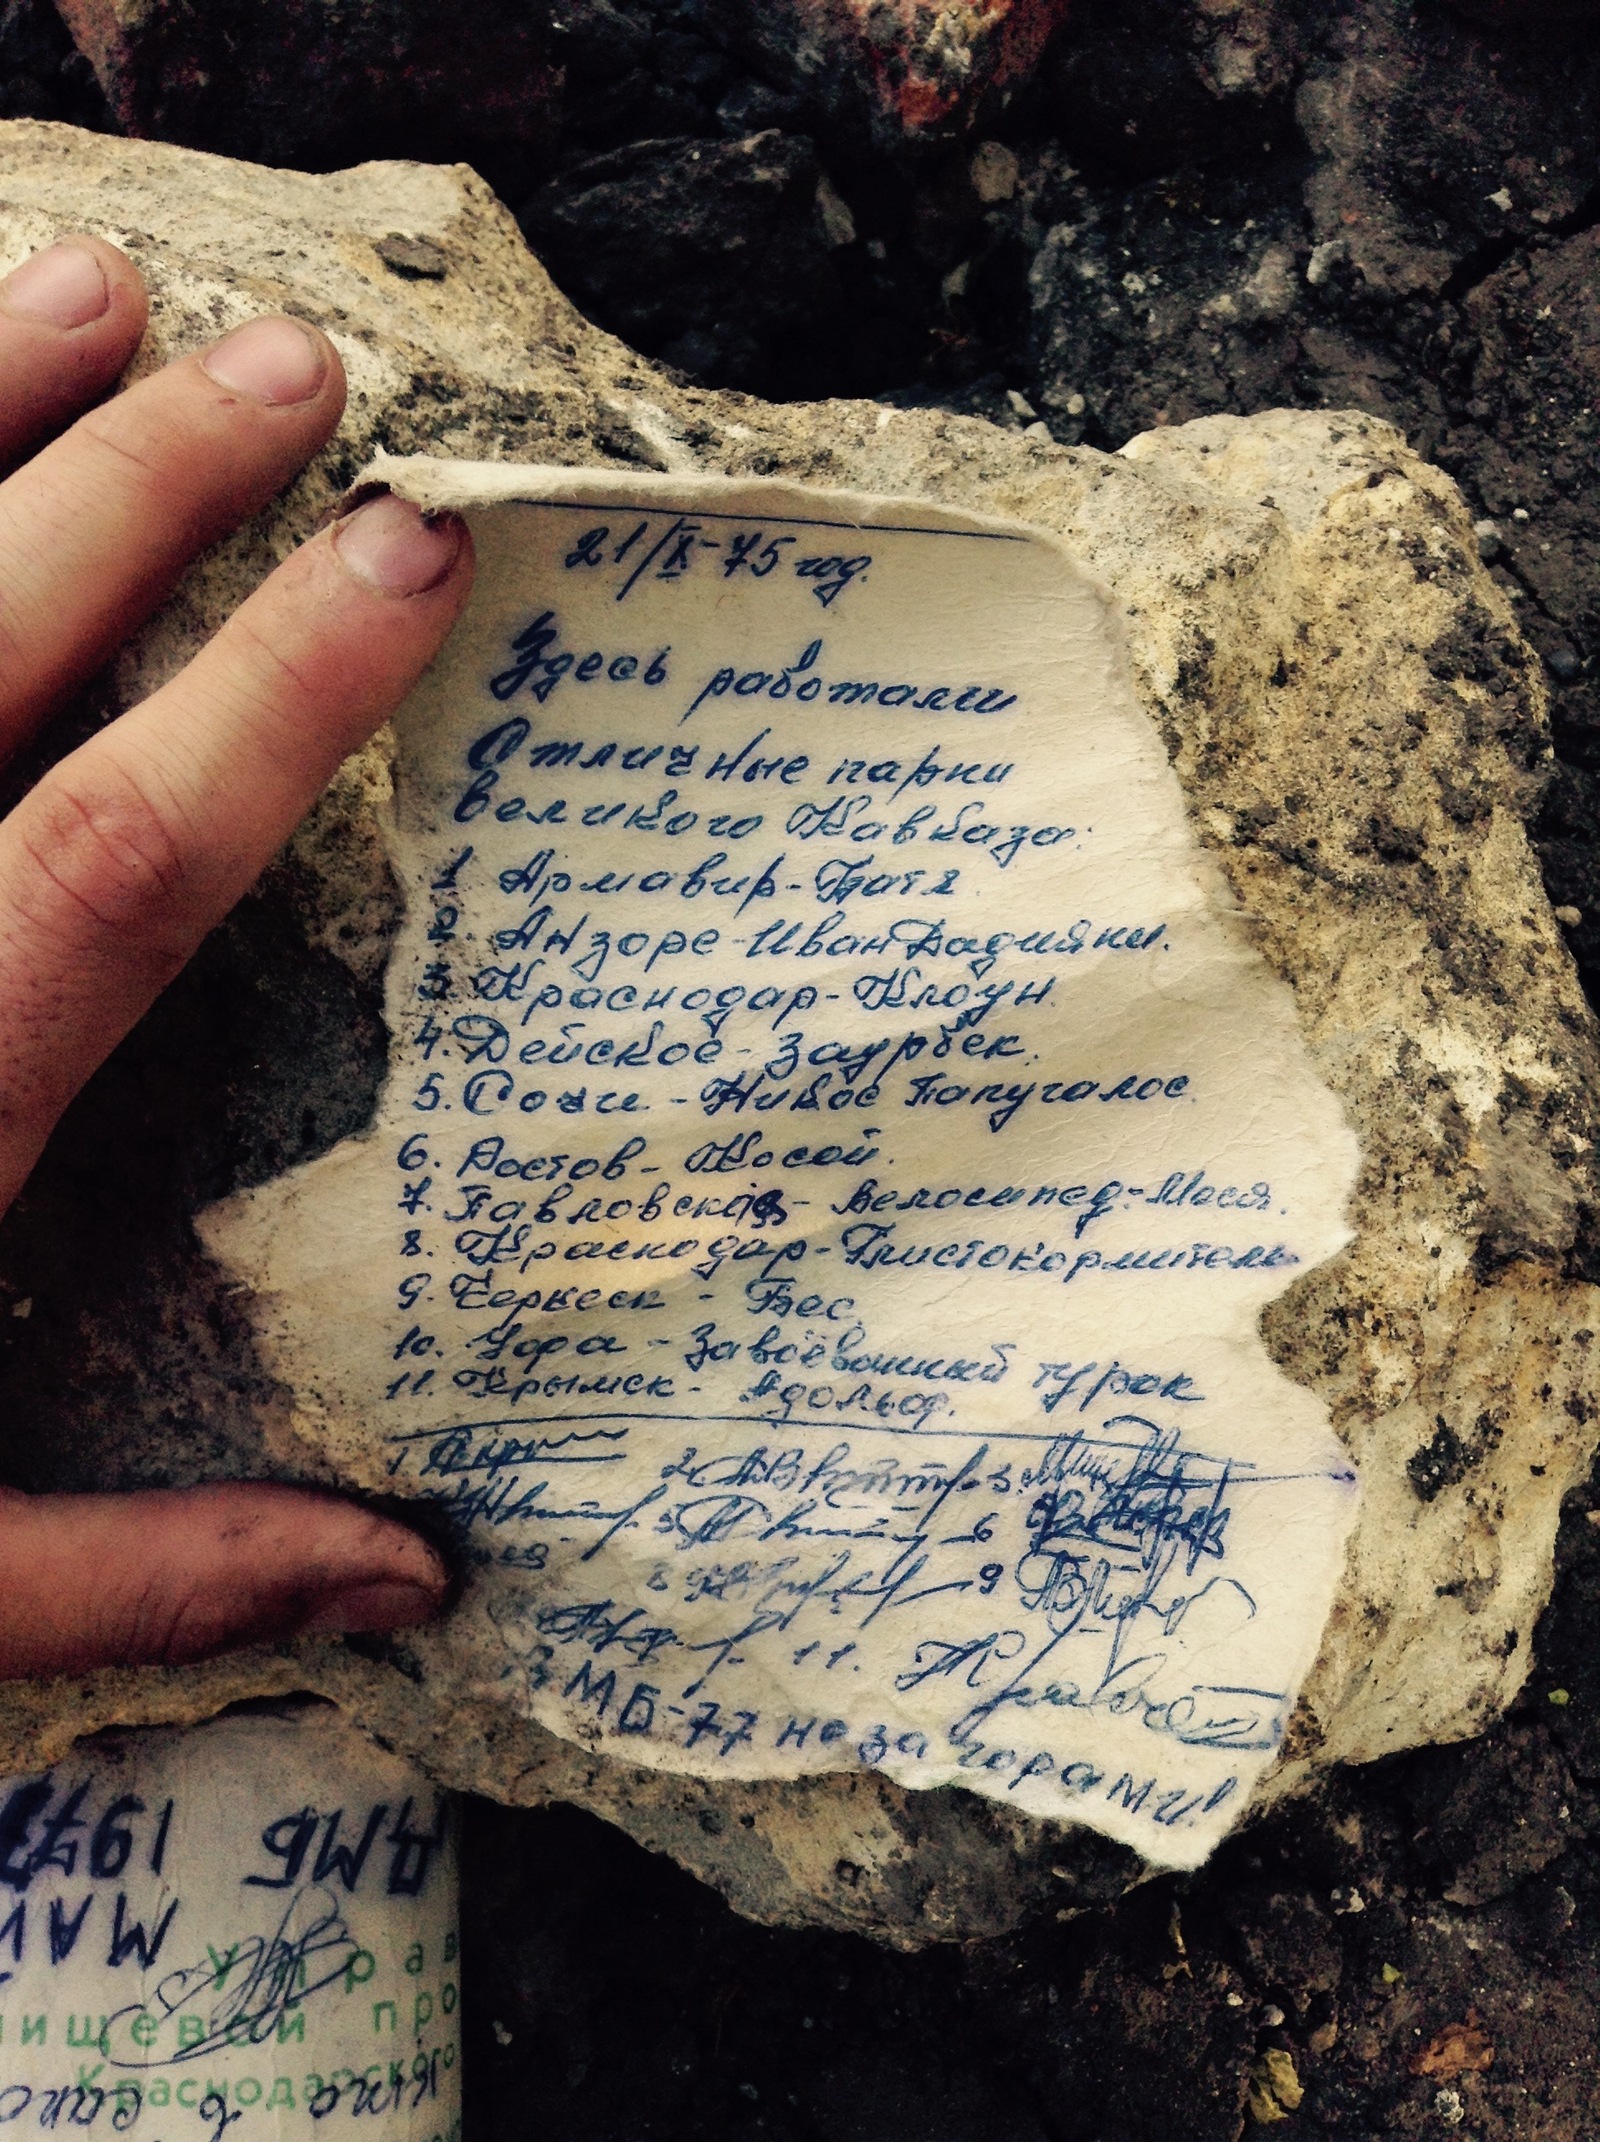 21/X-75 год.
Здесь работали
Отличные парни
великого Кавказа:
1 Армавир-Батя
2. Анзоре-Иван Дадияни.
3. Краснодар-Клоун
4. Дейское-Заурбек.
5. Сочи-Никос Папучалос.
6. Ростов-Косой.
7. Павловская-Велосипед-Мося.
8. Краснодар-Глистокормитель
9. Черкеск-Бес
10. Уфа-Завоёванный турок
11. Крымск-Адольф.
1
2 3
5 6
8 9
11.
ДМБ-77 не за горами!
ДМБ 197
МАЙ
Управ
ищевой про
Краснодарского
в